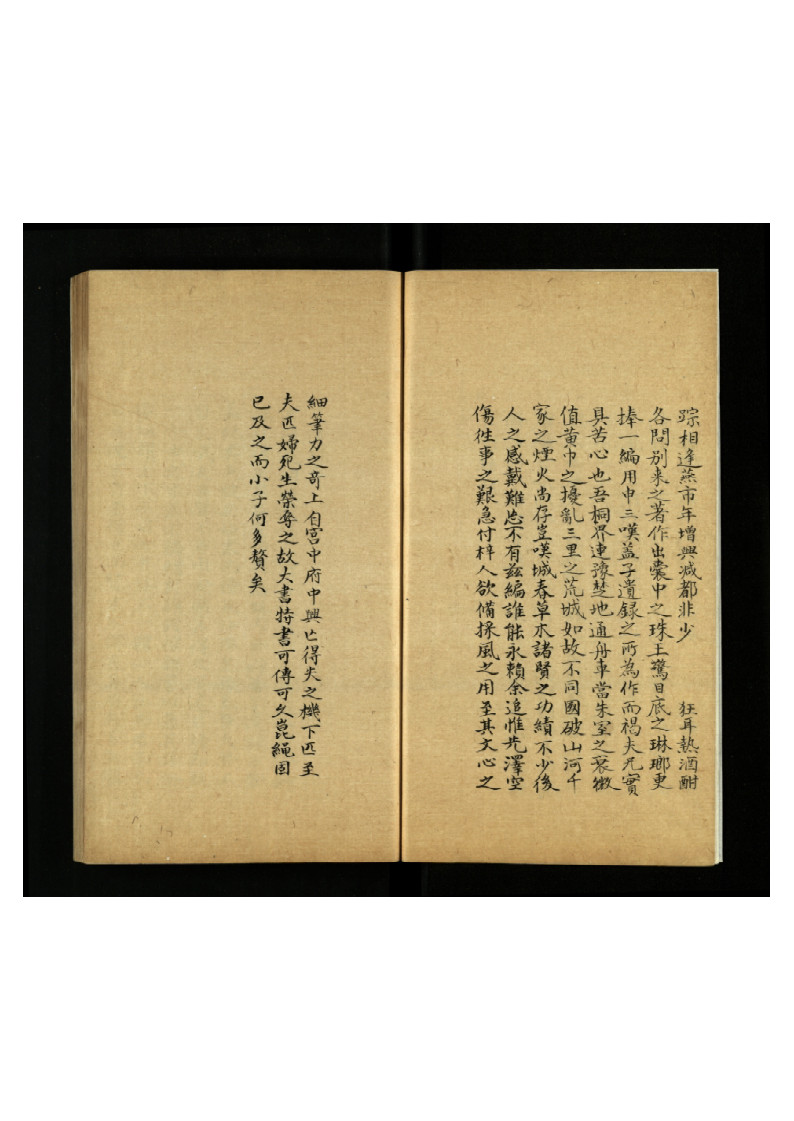 踪相逢燕市年增興减都非少　狂耳熱酒酣
各問别来之著作出囊中之珠玉驚目底之琳瑯更
捧一編用申三嘆盖子遺録之所為作而褐夫兄實
具苦心也吾桐界連豫楚地通舟車當朱室之衰微
值黄巾之擾亂三里之荒城如故不同國破山河千
家之煙火尚存豈嘆城春草木諸賢之功績不少後
人之感戴難忘不有兹編誰能永賴余追惟先澤空
傷徃事之艱急付梓人欲備採風之用至其文心之
細筆力之竒上自宫中府中興亡得失之機下匹至
夫匹婦死生榮辱之故大書特書可傳可久崑繩固
已及之而小子何多贅矣